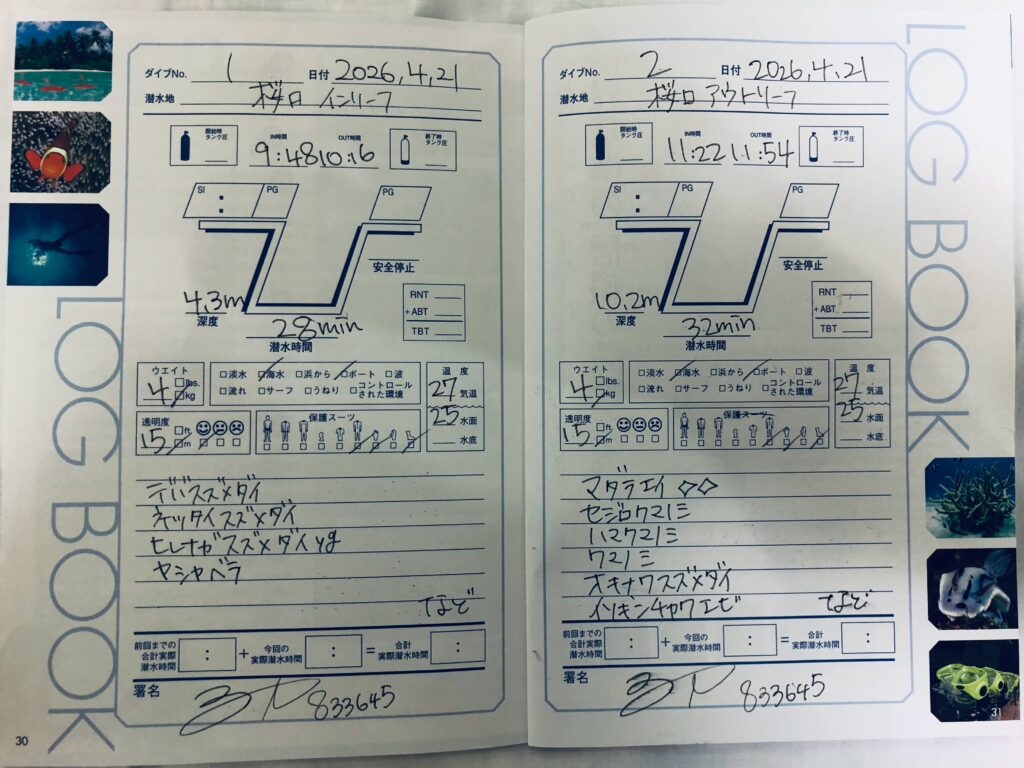 LOG BOOK
ダイブNo. 1 日付 2026,4,21
潜水地 桜口 インリーフ
開始時タンク圧 IN時間 9:48 OUT時間 10:16 終了時タンク圧
SI : PG PG
安全停止
4.3m
深度
28min
潜水時間
RNT
+ABT
TBT
ウエイト
4 □lbs. □kg
□淡水 □海水 □浜から □ボート □波
□流れ □サーフ □うねり □コントロールされた環境
温度
27 気温
25 水面
水底
透明度
15 □ft □m
保護スーツ
デバスズメダイ
ネッタイスズメダイ
ヒレナガスズメダイyg
ヤシャベラ
など
前回までの合計実際潜水時間 : + 今回の実際潜水時間 : = 合計 :
署名 833645
30
LOG BOOK
ダイブNo. 2 日付 2026,4,21
潜水地 桜口 アウトリーフ
開始時タンク圧 IN時間 11:22 OUT時間 11:54 終了時タンク圧
SI : PG PG
安全停止
10.2m
深度
32min
潜水時間
RNT
+ABT
TBT
ウエイト
4 □lbs. □kg
□淡水 □海水 □浜から □ボート □波
□流れ □サーフ □うねり □コントロールされた環境
温度
27 気温
25 水面
水底
透明度
15 □ft □m
保護スーツ
マダラエイ ◇◇
セジロクマノミ
ハマクマノミ
クマノミ
オキナワスズメダイ
イソギンチャクエビ など
前回までの合計実際潜水時間 : + 今回の実際潜水時間 : = 合計 :
署名 833645
31